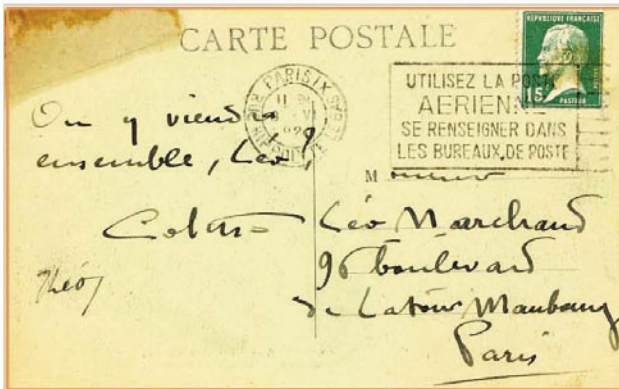 CARTE POSTALE
REPUBLIQUE FRANÇAISE
15
PASTEUR
POSTES
PARIS IX
UTILISEZ LA POSTE
AERIENNE
SE RENSEIGNER DANS
LES BUREAUX DE POSTE
On y viendra
ensemble, Léo ?
Colette
M onsieur
Léo Marchand
96 boulevard
de Latour Maubourg
Paris